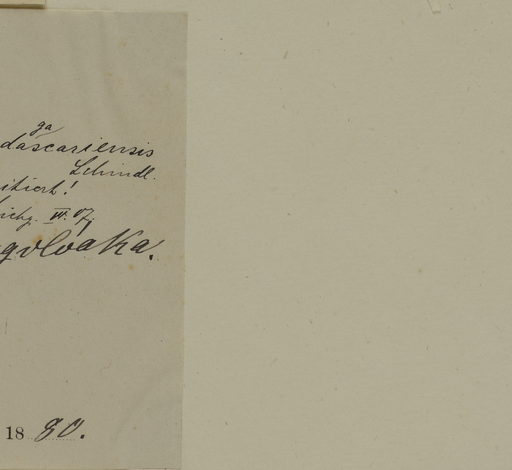 ga
dascariensis
Schindl.
itiert!
III. 07.
goloaka.
18 80.